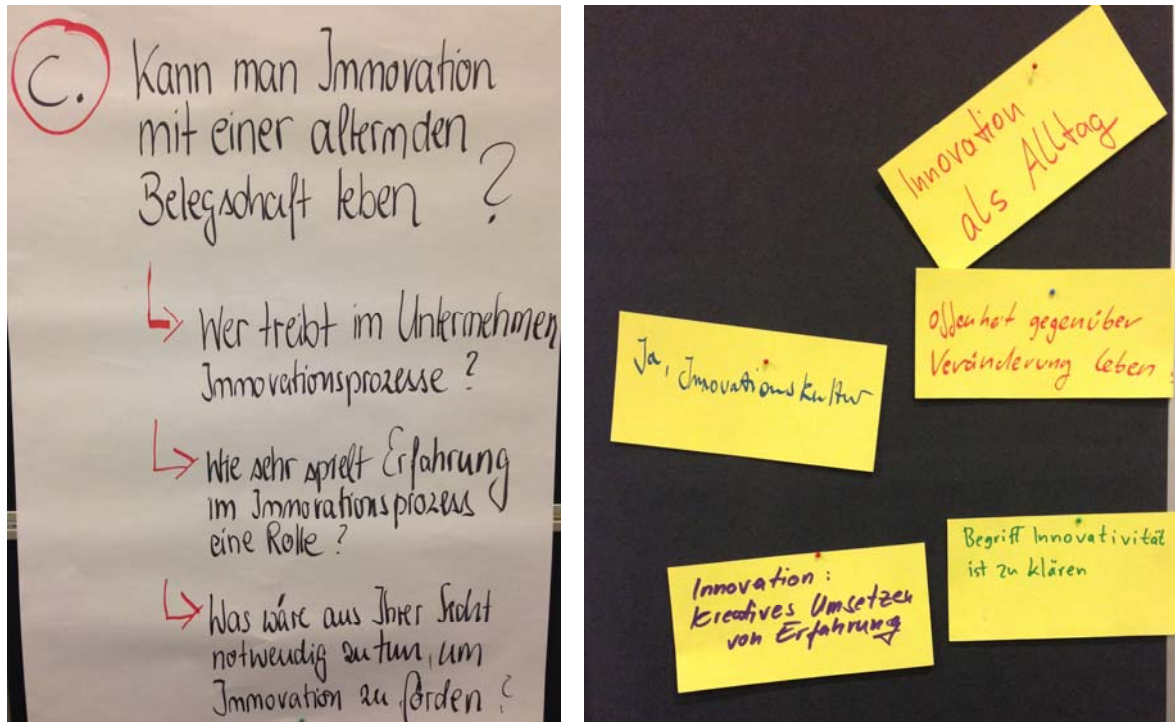 C.
Kann man Innovation
mit einer alternden
Belegschaft leben ?
Wer treibt im Unternehmen
Innovationsprozesse ?
Wie sehr spielt Erfahrung
im Innovationsprozess
eine Rolle ?
Was wäre aus Ihrer Sicht
notwendig zu tun, um
Innovation zu förden ?
Innovation
als Alltag
Offenheit gegenüber
Veränderung leben.
Ja, Innovationskultur
Begriff Innovativität
ist zu klären
Innovation :
kreatives Umsetzen
von Erfahrung